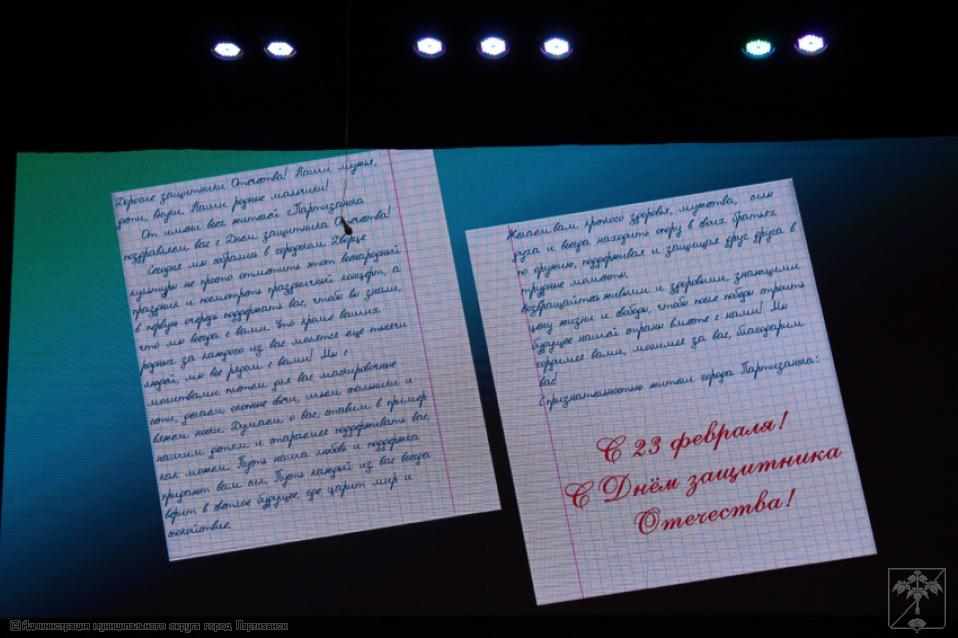 Дорогие защитники Отечества! Наши мужья,
дети, внуки. Наши родные мальчики!
От имени всех жителей г.Партизанска
поздравляем вас с Днем защитника Отечества!
Сегодня мы собрались в городском Дворце
культуры не просто отметить этот всенародный
праздник и посмотреть праздничный концерт, а
в первую очередь поддержать вас, чтобы вы знали,
что мы всегда с вами. Что кроме ваших
родных за каждого из вас молятся еще тысячи
людей, мы все рядом с вами! Мы с
молитвами плетем для вас маскировочные
сети, делаем окопные свечи, шьем
вяжем носки. Думаем о вас, ставим в пример
нашим детям и стараемся поддерживать вас,
как можем. Пусть наша любовь и поддержка
придают вам сил. Пусть каждый из вас всегда
верит в светлое будущее, где царит мир и
спокойствие.
Желаем вам крепкого здоровья, мужества, силы
духа и всегда находить опору в своих братьях
по оружию, поддерживая и защищая друг друга в
трудные моменты.
Возвращайтесь живыми и здоровыми, знающими
цену жизни и свободы, чтобы после победы строить
будущее нашей страны вместе с нами! Мы
гордимся вами, молимся за вас, благодарим
вас!
С признательностью жители города Партизанска:
С 23 февраля!
С Днём защитника
Отечества!
© Администрация муниципального округа город Партизанск